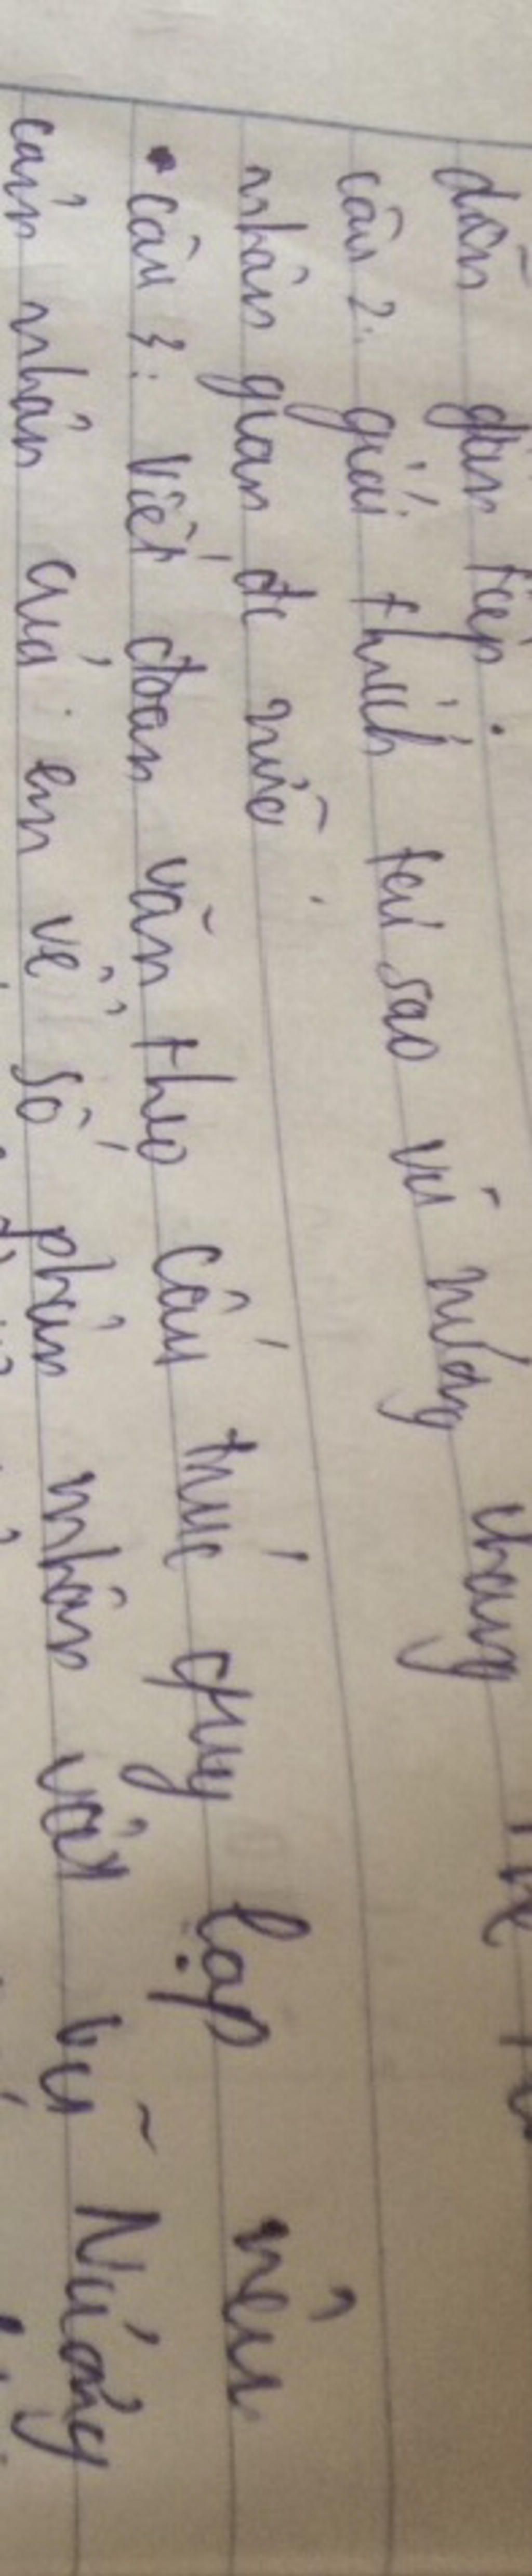 dẫn gián tiếp.
câu 2: giải thích tại sao vũ nương chẳng
nhân gian đc nữa
câu 3: Viết đoạn văn theo cấu trúc quy lạp nêu
cảm nhân của em về số phận nhân vật vũ Nương